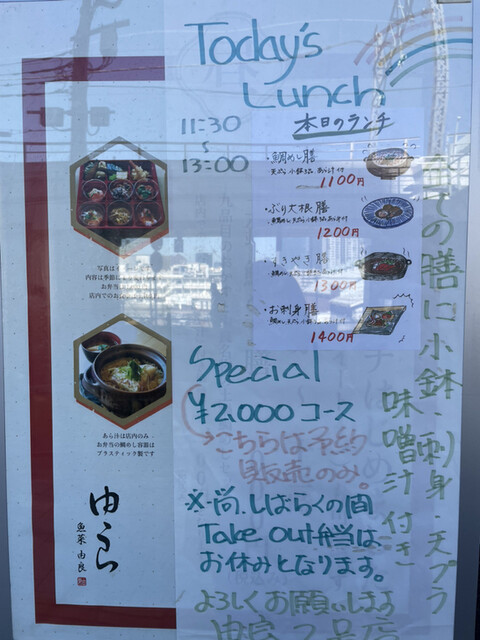 Today's
Lunch
11:30
〜
13:00
本日のランチ
・鯛めし膳
1100円
・ぶり大根膳
1200円
・すきやき膳
1300円
・お刺身膳
1400円
Special
¥2,000コース
→こちらは予約
販売のみ。
※尚、しばらくの間
Take out弁当は
お休みとなります。
よろしくお願いします
由良2号店
全ての膳に小鉢・刺身・天プラ
味噌汁付き
写真は
内容は季節に
お弁当の
店内での
あら汁は店内のみ
お弁当の鯛めし容器は
プラスティック製です
ゆうら
魚菜 由良